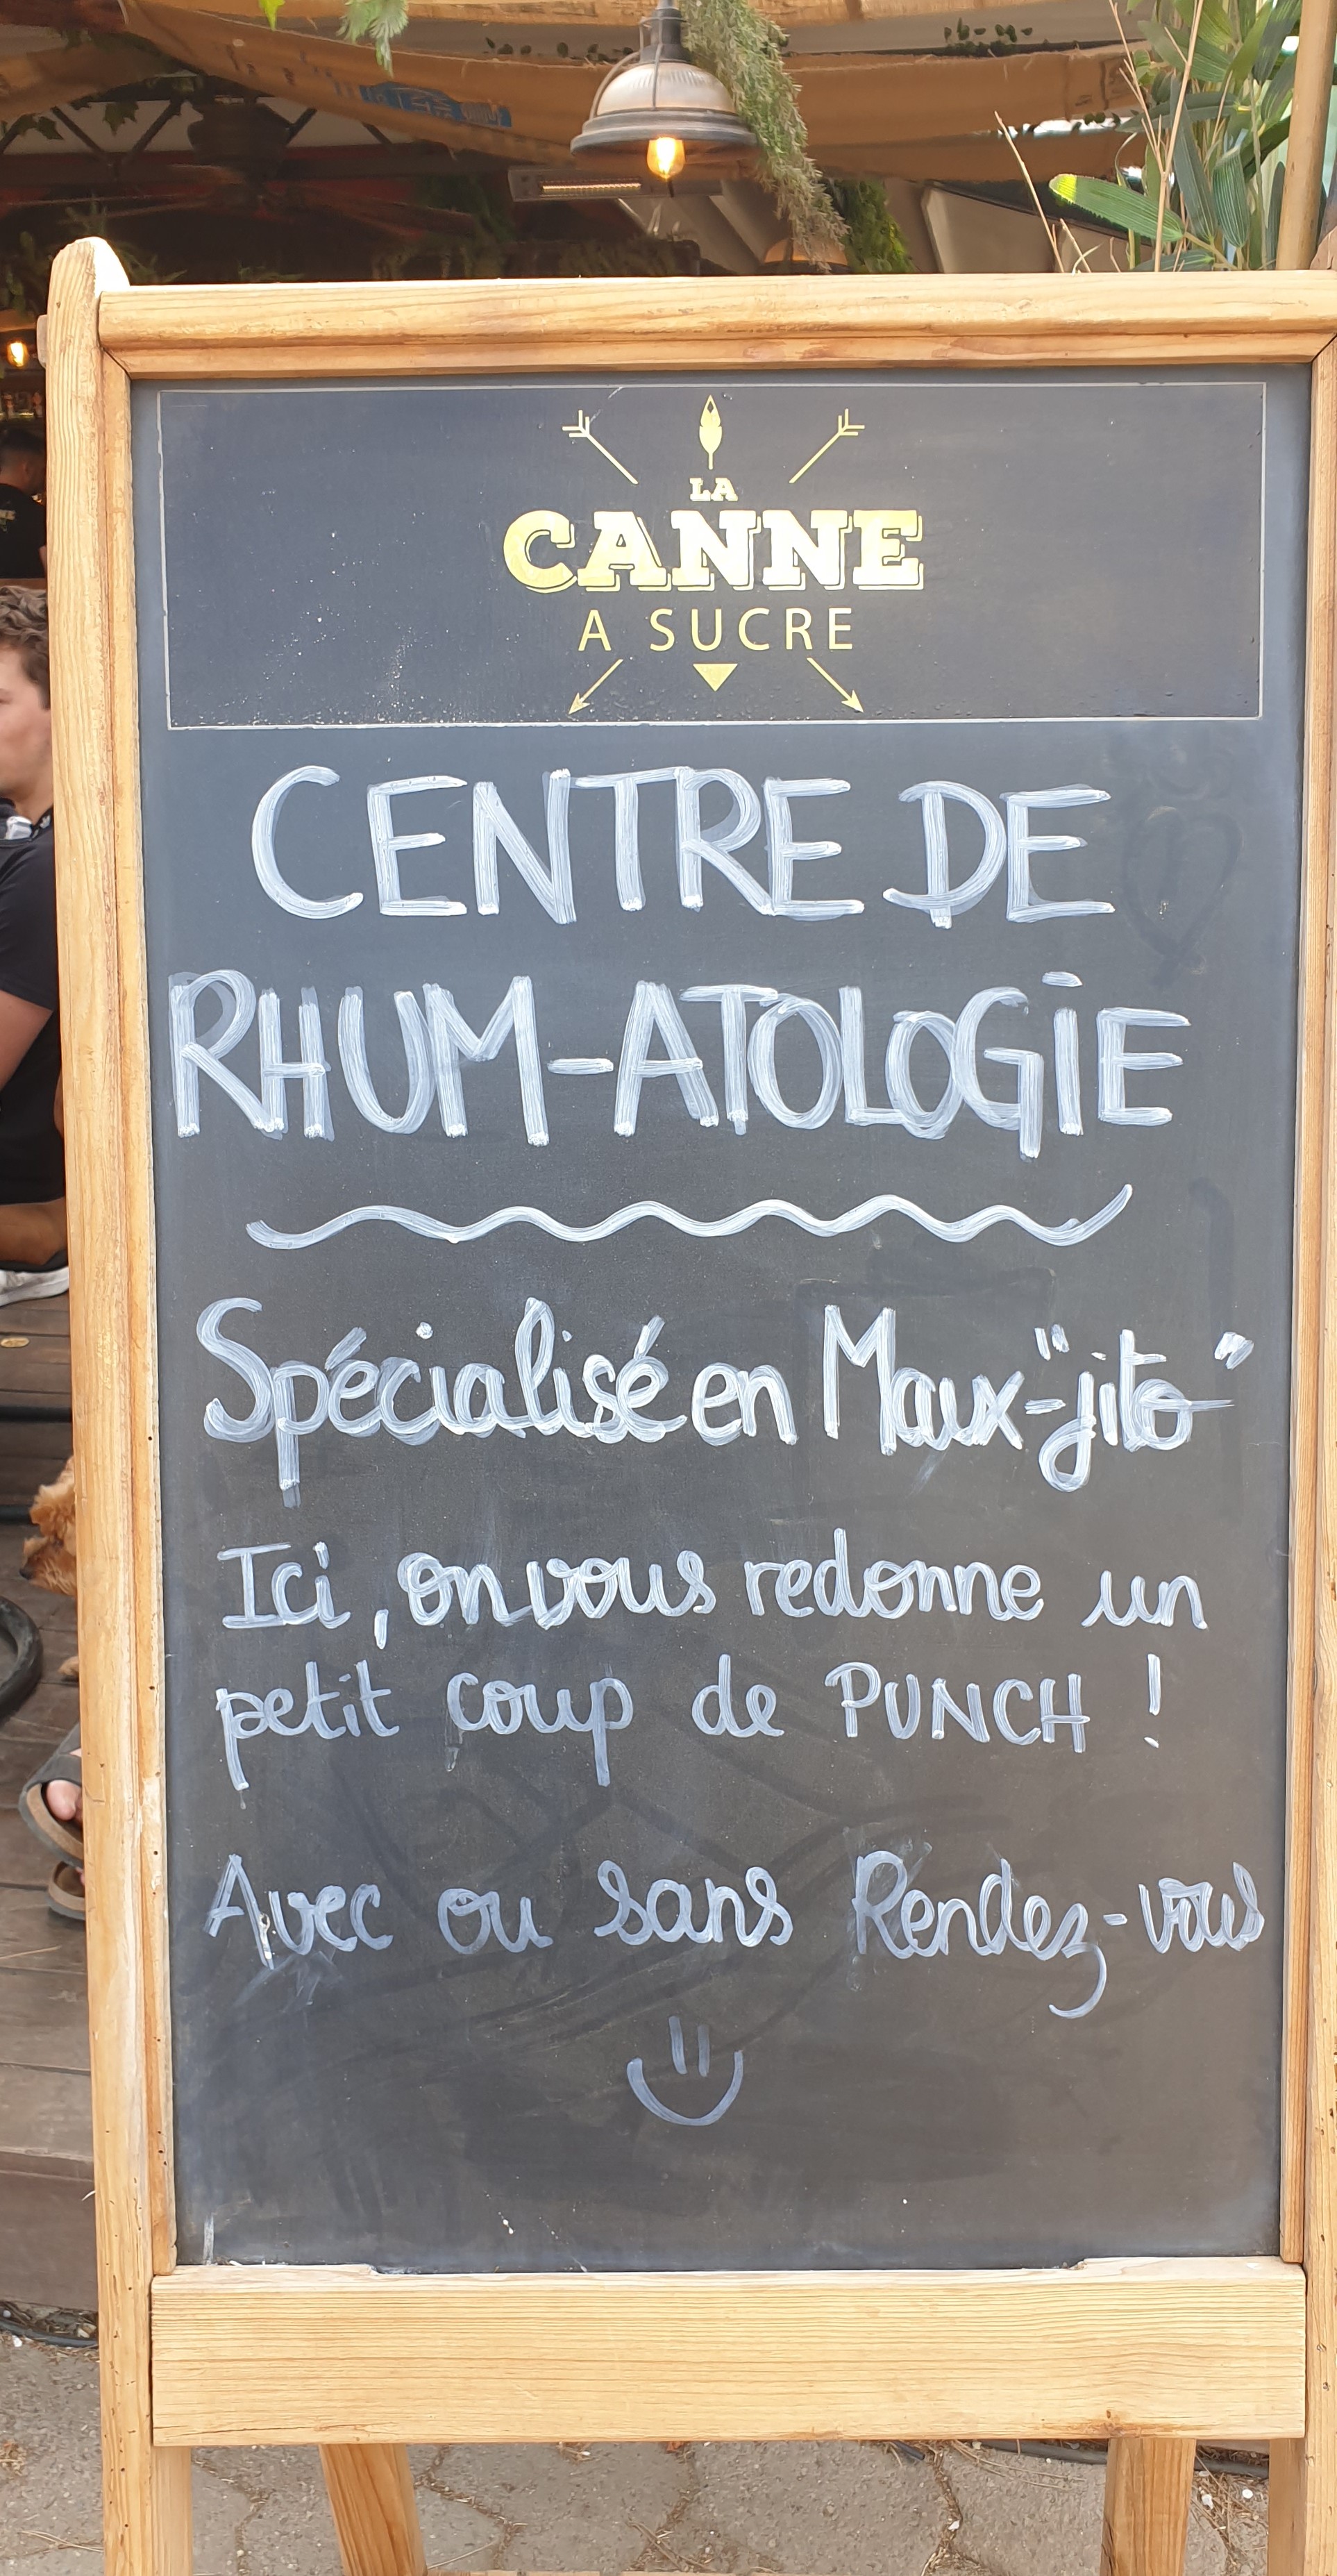 LA
CANNE
A SUCRE
CENTRE DE
RHUM-ATOLOGIE
Spécialisé en Maux-"jito"
Ici, on vous redonne un
petit coup de PUNCH !
Avec ou sans Rendez-vous